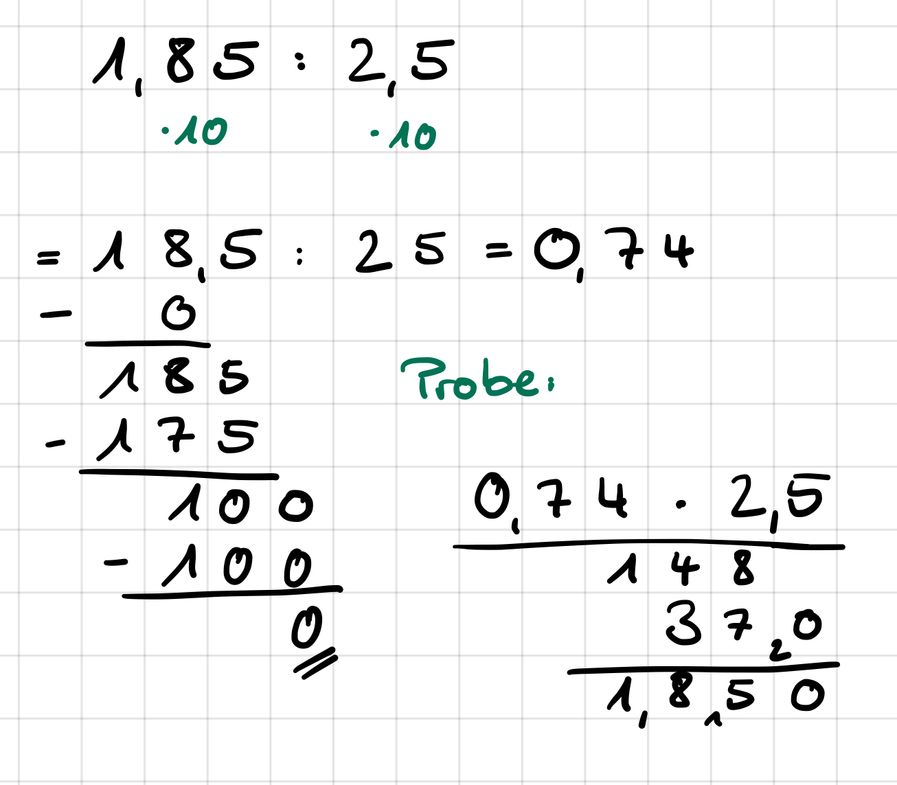 1,85 : 2,5
·10 ·10
= 18,5 : 25 = 0,74
- 0
185
- 175
100
- 100
0
Probe:
0,74 · 2,5
148
37₂0
1,8₁50